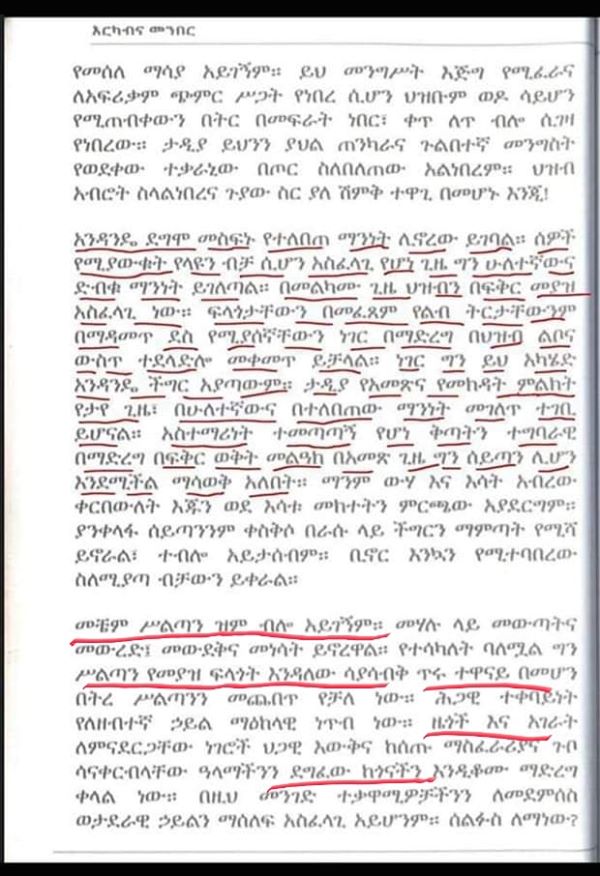 እርካብና መንበር
የመሰለ ማሳያ አይገኝም። ይህ መንግሥት እጅግ የሚፈራና
ለአፍሪቃም ጭምር ሥጋት የነበረ ሲሆን ህዝቡም ወዶ ሳይሆን
የሚጠብቀውን በትር በመፍራት ነበር፣ ቀጥ ለጥ ብሎ ሲገዛ
የነበረው። ታዲያ ይህንን ያህል ጠንካራና ጉልበተኛ መንግስት
የወደቀው ተቃራኒው በጦር ስለበለጠው አልነበረም። ህዝብ
አብሮት ስላልነበረና ጉያው ስር ያለ ሽምቅ ተዋጊ በመሆኑ እንጂ!
እንዳንዴ ደግሞ መስፍኑ የተለበጠ ማንነት ሊኖረው ይገባል። ሰዎች
የሚያውቁት የላዩን ብቻ ሲሆን አስፈላጊ የሆነ ጊዜ ግን ሁለተኛውና
ድብቁ ማንነት ይገለጣል። በመልካሙ ጊዜ ህዝብን በፍቅር መያዝ
አስፈላጊ ነው። ፍላጎታቸውን በመፈጸም የልብ ትርታቸውንም
በማዳመጥ ደስ የሚያሰኛቸውን ነገር በማድረግ በህዝብ ልቦና
ውስጥ ተደላድሎ መቀመጥ ይቻላል። ነገር ግን ይህ አካሄድ
አንዳንዴ ችግር አያጣውም። ታዲያ የአመጽና የመከዳት ምልክት
የታየ ጊዜ፣ በሁለተኛውና በተለበጠው ማንነት መገለጥ ተገቢ
ይሆናል። አስተማሪነት ተመጣጣኝ የሆነ ቅጣትን ተግባራዊ
በማድረግ በፍቅር ወቅት መልዓክ በአመጽ ጊዜ ግን ሰይጣን ሊሆን
እንደሚችል ማሳወቅ አለበት። ማንም ውሃ እና እሳት አብረው
ቀርበውለት እጁን ወደ እሳቱ መክተትን ምርጫው አያደርግም።
ያንቀላፋ ሰይጣንንም ቀስቅሶ በራሱ ላይ ችግርን ማምጣት የሚሻ
ይኖራል፣ ተብሎ አይታሰብም። ቢኖር እንኳን የሚተባበረው
ስለሚያጣ ብቻውን ይቀራል።
መቼም ሥልጣን ዝም ብሎ አይገኝም። መሃሉ ላይ መውጣትና
መውረድ፤ መውደቅና መነሳት ይኖረዋል። የተሳካለት ባለሟል ግን
ሥልጣን የመያዝ ፍላጎት እንዳለው ሳያሳብቅ ጥሩ ተዋናይ በመሆን
በትረ ሥልጣንን መጨበጥ የቻለ ነው። ሕጋዊ ተቀባይነት
የለዘብተኛ ኃይል ማዕከላዊ ነጥብ ነው። ዜጎች እና አገራት
ለምናደርጋቸው ነገሮች ህጋዊ እውቅና ከሰጡ ማስፈራሪያና ጉቦ
ሳናቀርብላቸው ዓላማችንን ደግፈው ከጎናችን እንዲቆሙ ማድረግ
ቀላል ነው። በዚህ መንገድ ተቃዋሚዎቻችንን ለመደምሰስ
ወታደራዊ ኃይልን ማሰለፍ አስፈላጊ አይሆንም። ሰልፉስ ለማነው?